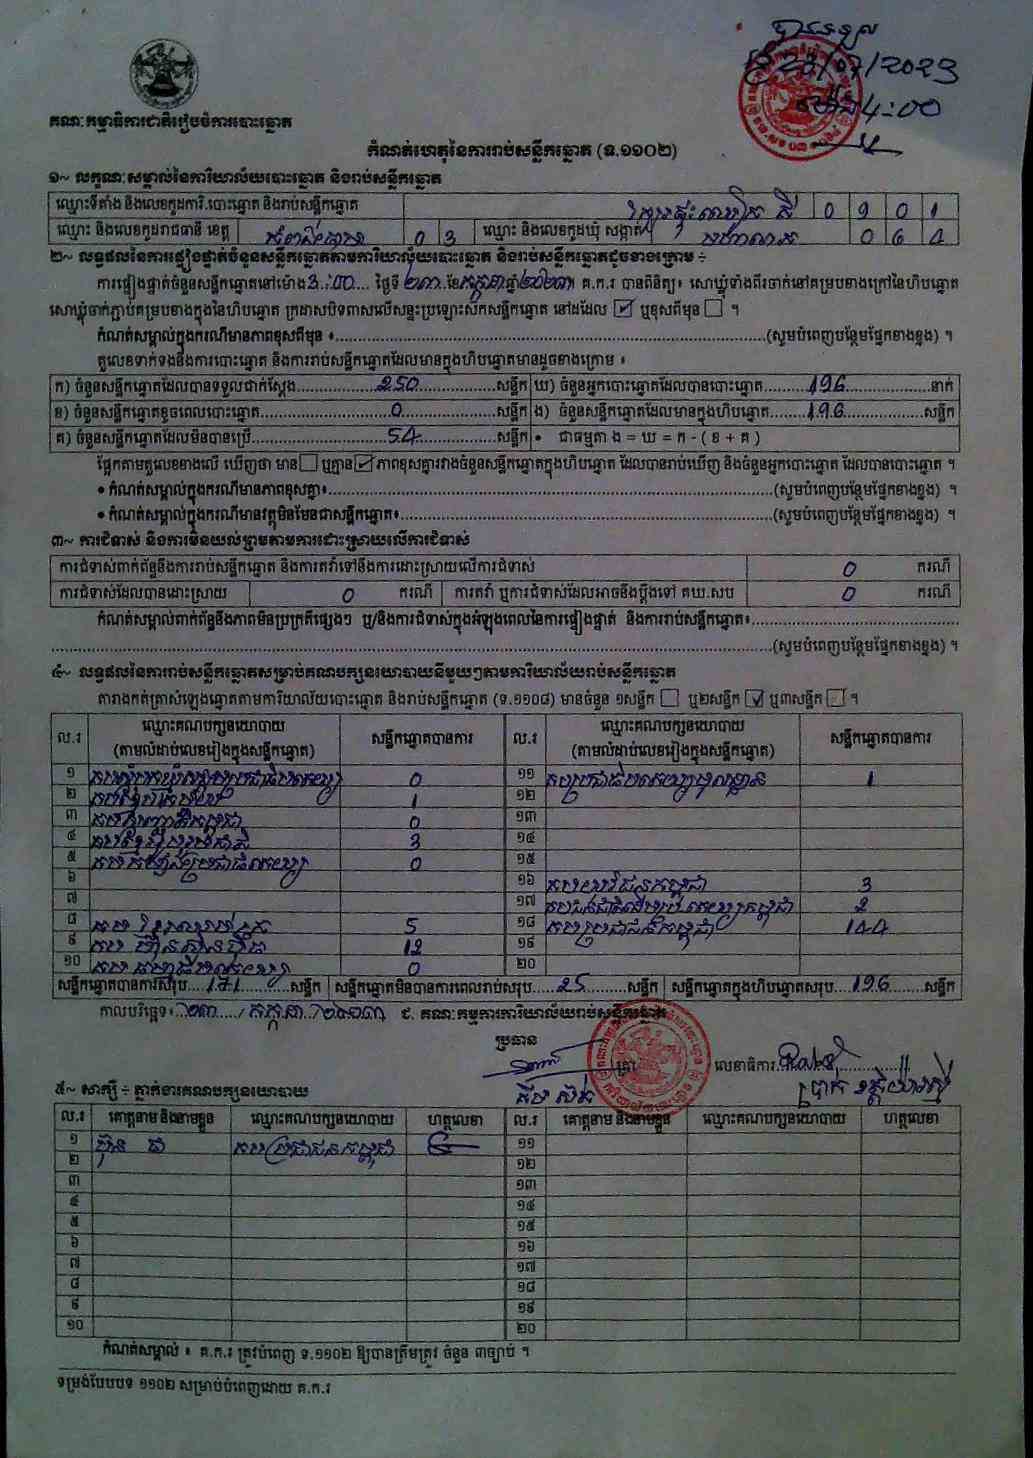 បានទទួល
ថ្ងៃ 23/07/2023
ម៉ោង 4:00
គណៈកម្មាធិការជាតិរៀបចំការបោះឆ្នោត
កំណត់ហេតុនៃការរាប់សន្លឹកឆ្នោត (ទ.១១០២)
១~ លក្ខណៈសម្គាល់នៃការិយាល័យបោះឆ្នោត និងរាប់សន្លឹកឆ្នោត
ឈ្មោះទីតាំង និងលេខកូដការិ.បោះឆ្នោត និងរាប់សន្លឹកឆ្នោត 0901
ឈ្មោះ និងលេខកូដរាជធានី ខេត្ត កំពង់ចាម 03 ឈ្មោះ និងលេខកូដឃុំ សង្កាត់ 064
២~ លទ្ធផលនៃការផ្ទៀងផ្ទាត់ចំនួនសន្លឹកឆ្នោតតាមការិយាល័យបោះឆ្នោត និងរាប់សន្លឹកឆ្នោតដូចខាងក្រោម ÷
ការផ្ទៀងផ្ទាត់ចំនួនសន្លឹកឆ្នោតនៅម៉ោង 3:00 ថ្ងៃទី ២៣ ខែ កក្កដា ឆ្នាំ ២០២៣ គ.ក.រ បានពិនិត្យ៖ សោឃ្លុំទាំងពីរចាក់នៅគម្របខាងក្រៅនៃហិបឆ្នោត
សោឃ្លុំចាក់ភ្ជាប់គម្របខាងក្នុងនៃហិបឆ្នោត ក្រដាសបិទពាសលើសន្ទះប្រឡោះសឹកសន្លឹកឆ្នោត នៅដដែល ☑ ឬខុសពីមុន ☐ ។
កំណត់សម្គាល់ក្នុងករណីមានភាពខុសពីមុន ៖...(សូមបំពេញបន្ថែមផ្នែកខាងខ្នង) ។
តួលេខទាក់ទងនឹងការបោះឆ្នោត និងការរាប់សន្លឹកឆ្នោតដែលមានក្នុងហិបឆ្នោតមានដូចខាងក្រោម ៖
ក) ចំនួនសន្លឹកឆ្នោតដែលបានទទួលជាក់ស្តែង...250...សន្លឹក ឃ) ចំនួនអ្នកបោះឆ្នោតដែលបានបោះឆ្នោត...196...នាក់
ខ) ចំនួនសន្លឹកឆ្នោតខូចពេលបោះឆ្នោត...0...សន្លឹក ង) ចំនួនសន្លឹកឆ្នោតដែលមានក្នុងហិបឆ្នោត...196...សន្លឹក
គ) ចំនួនសន្លឹកឆ្នោតដែលមិនបានប្រើ...54...សន្លឹក • ជាធម្មតា ង = ឃ = ក - ( ខ + គ )
ផ្អែកតាមតួលេខខាងលើ ឃើញថា មាន ☐ ឬគ្មាន ☑ ភាពខុសគ្នារវាងចំនួនសន្លឹកឆ្នោតក្នុងហិបឆ្នោត ដែលបានរាប់ឃើញ និងចំនួនអ្នកបោះឆ្នោត ដែលបានបោះឆ្នោត ។
• កំណត់សម្គាល់ក្នុងករណីមានភាពខុសគ្នា៖...(សូមបំពេញបន្ថែមផ្នែកខាងខ្នង) ។
• កំណត់សម្គាល់ក្នុងករណីមានវត្ថុមិនមែនជាសន្លឹកឆ្នោត៖...(សូមបំពេញបន្ថែមផ្នែកខាងខ្នង) ។
៣~ ការជំទាស់ និងការមិនយល់ព្រមតាមការដោះស្រាយលើការជំទាស់
ការជំទាស់ពាក់ព័ន្ធនឹងការរាប់សន្លឹកឆ្នោត និងការតវ៉ាទៅនឹងការដោះស្រាយលើការជំទាស់ 0 ករណី
ការជំទាស់ដែលបានដោះស្រាយ 0 ករណី ការតវ៉ា ឬការជំទាស់ដែលអាចនឹងប្តឹងទៅ គឃ.សប 0 ករណី
កំណត់សម្គាល់ពាក់ព័ន្ធនឹងភាពមិនប្រក្រតីផ្សេងៗ ឬ/និងការជំទាស់ក្នុងអំឡុងពេលនៃការផ្ទៀងផ្ទាត់ និងការរាប់សន្លឹកឆ្នោត៖...
...(សូមបំពេញបន្ថែមផ្នែកខាងខ្នង) ។
៤~ លទ្ធផលនៃការរាប់សន្លឹកឆ្នោតសម្រាប់គណបក្សនយោបាយនីមួយៗតាមការិយាល័យរាប់សន្លឹកឆ្នោត
តារាងកត់ត្រាសំឡេងឆ្នោតតាមការិយាល័យបោះឆ្នោត និងរាប់សន្លឹកឆ្នោត (ទ.១១០៨) មានចំនួន ១សន្លឹក ☐ ឬ២សន្លឹក ☑ ឬ៣សន្លឹក ☐ ។
ល.រ ឈ្មោះគណបក្សនយោបាយ (តាមលំដាប់លេខរៀងក្នុងសន្លឹកឆ្នោត) សន្លឹកឆ្នោតបានការ ល.រ ឈ្មោះគណបក្សនយោបាយ (តាមលំដាប់លេខរៀងក្នុងសន្លឹកឆ្នោត) សន្លឹកឆ្នោតបានការ
១ 0 ១១ គបប្រជាធិបតេយ្យមូលដ្ឋាន 1
២ 1 ១២
៣ 0 ១៣
៤ 3 ១៤
៥ 0 ១៥
៦ ១៦ គបយុវជនកម្ពុជា 3
៧ ១៧ 2
៨ 5 ១៨ គបប្រជាជនកម្ពុជា 144
៩ គប ហ៊្វុនស៊ិនប៉ិច 12 ១៩
១០ 0 ២០
សន្លឹកឆ្នោតបានការសរុប...171...សន្លឹក សន្លឹកឆ្នោតមិនបានការពេលរាប់សរុប...25...សន្លឹក សន្លឹកឆ្នោតក្នុងហិបឆ្នោតសរុប...196...សន្លឹក
កាលបរិច្ឆេទ៖ ២៣ / កក្កដា / ២០២៣ ជ. គណៈកម្មការការិយាល័យរាប់សន្លឹកឆ្នោត
ប្រធាន
ត្រា
លេខាធិការ
៥~ សាក្សី ÷ ភ្នាក់ងារគណបក្សនយោបាយ
ល.រ គោត្តនាម និងនាមខ្លួន ឈ្មោះគណបក្សនយោបាយ ហត្ថលេខា ល.រ គោត្តនាម និងនាមខ្លួន ឈ្មោះគណបក្សនយោបាយ ហត្ថលេខា
១ គបប្រជាជនកម្ពុជា ១១
២ ១២
៣ ១៣
៤ ១៤
៥ ១៥
៦ ១៦
៧ ១៧
៨ ១៨
៩ ១៩
១០ ២០
កំណត់សម្គាល់ ៖ គ.ក.រ ត្រូវបំពេញ ទ.១១០២ ឱ្យបានត្រឹមត្រូវ ចំនួន ៣ច្បាប់ ។
ទម្រង់បែបបទ ១១០២ សម្រាប់បំពេញដោយ គ.ក.រ